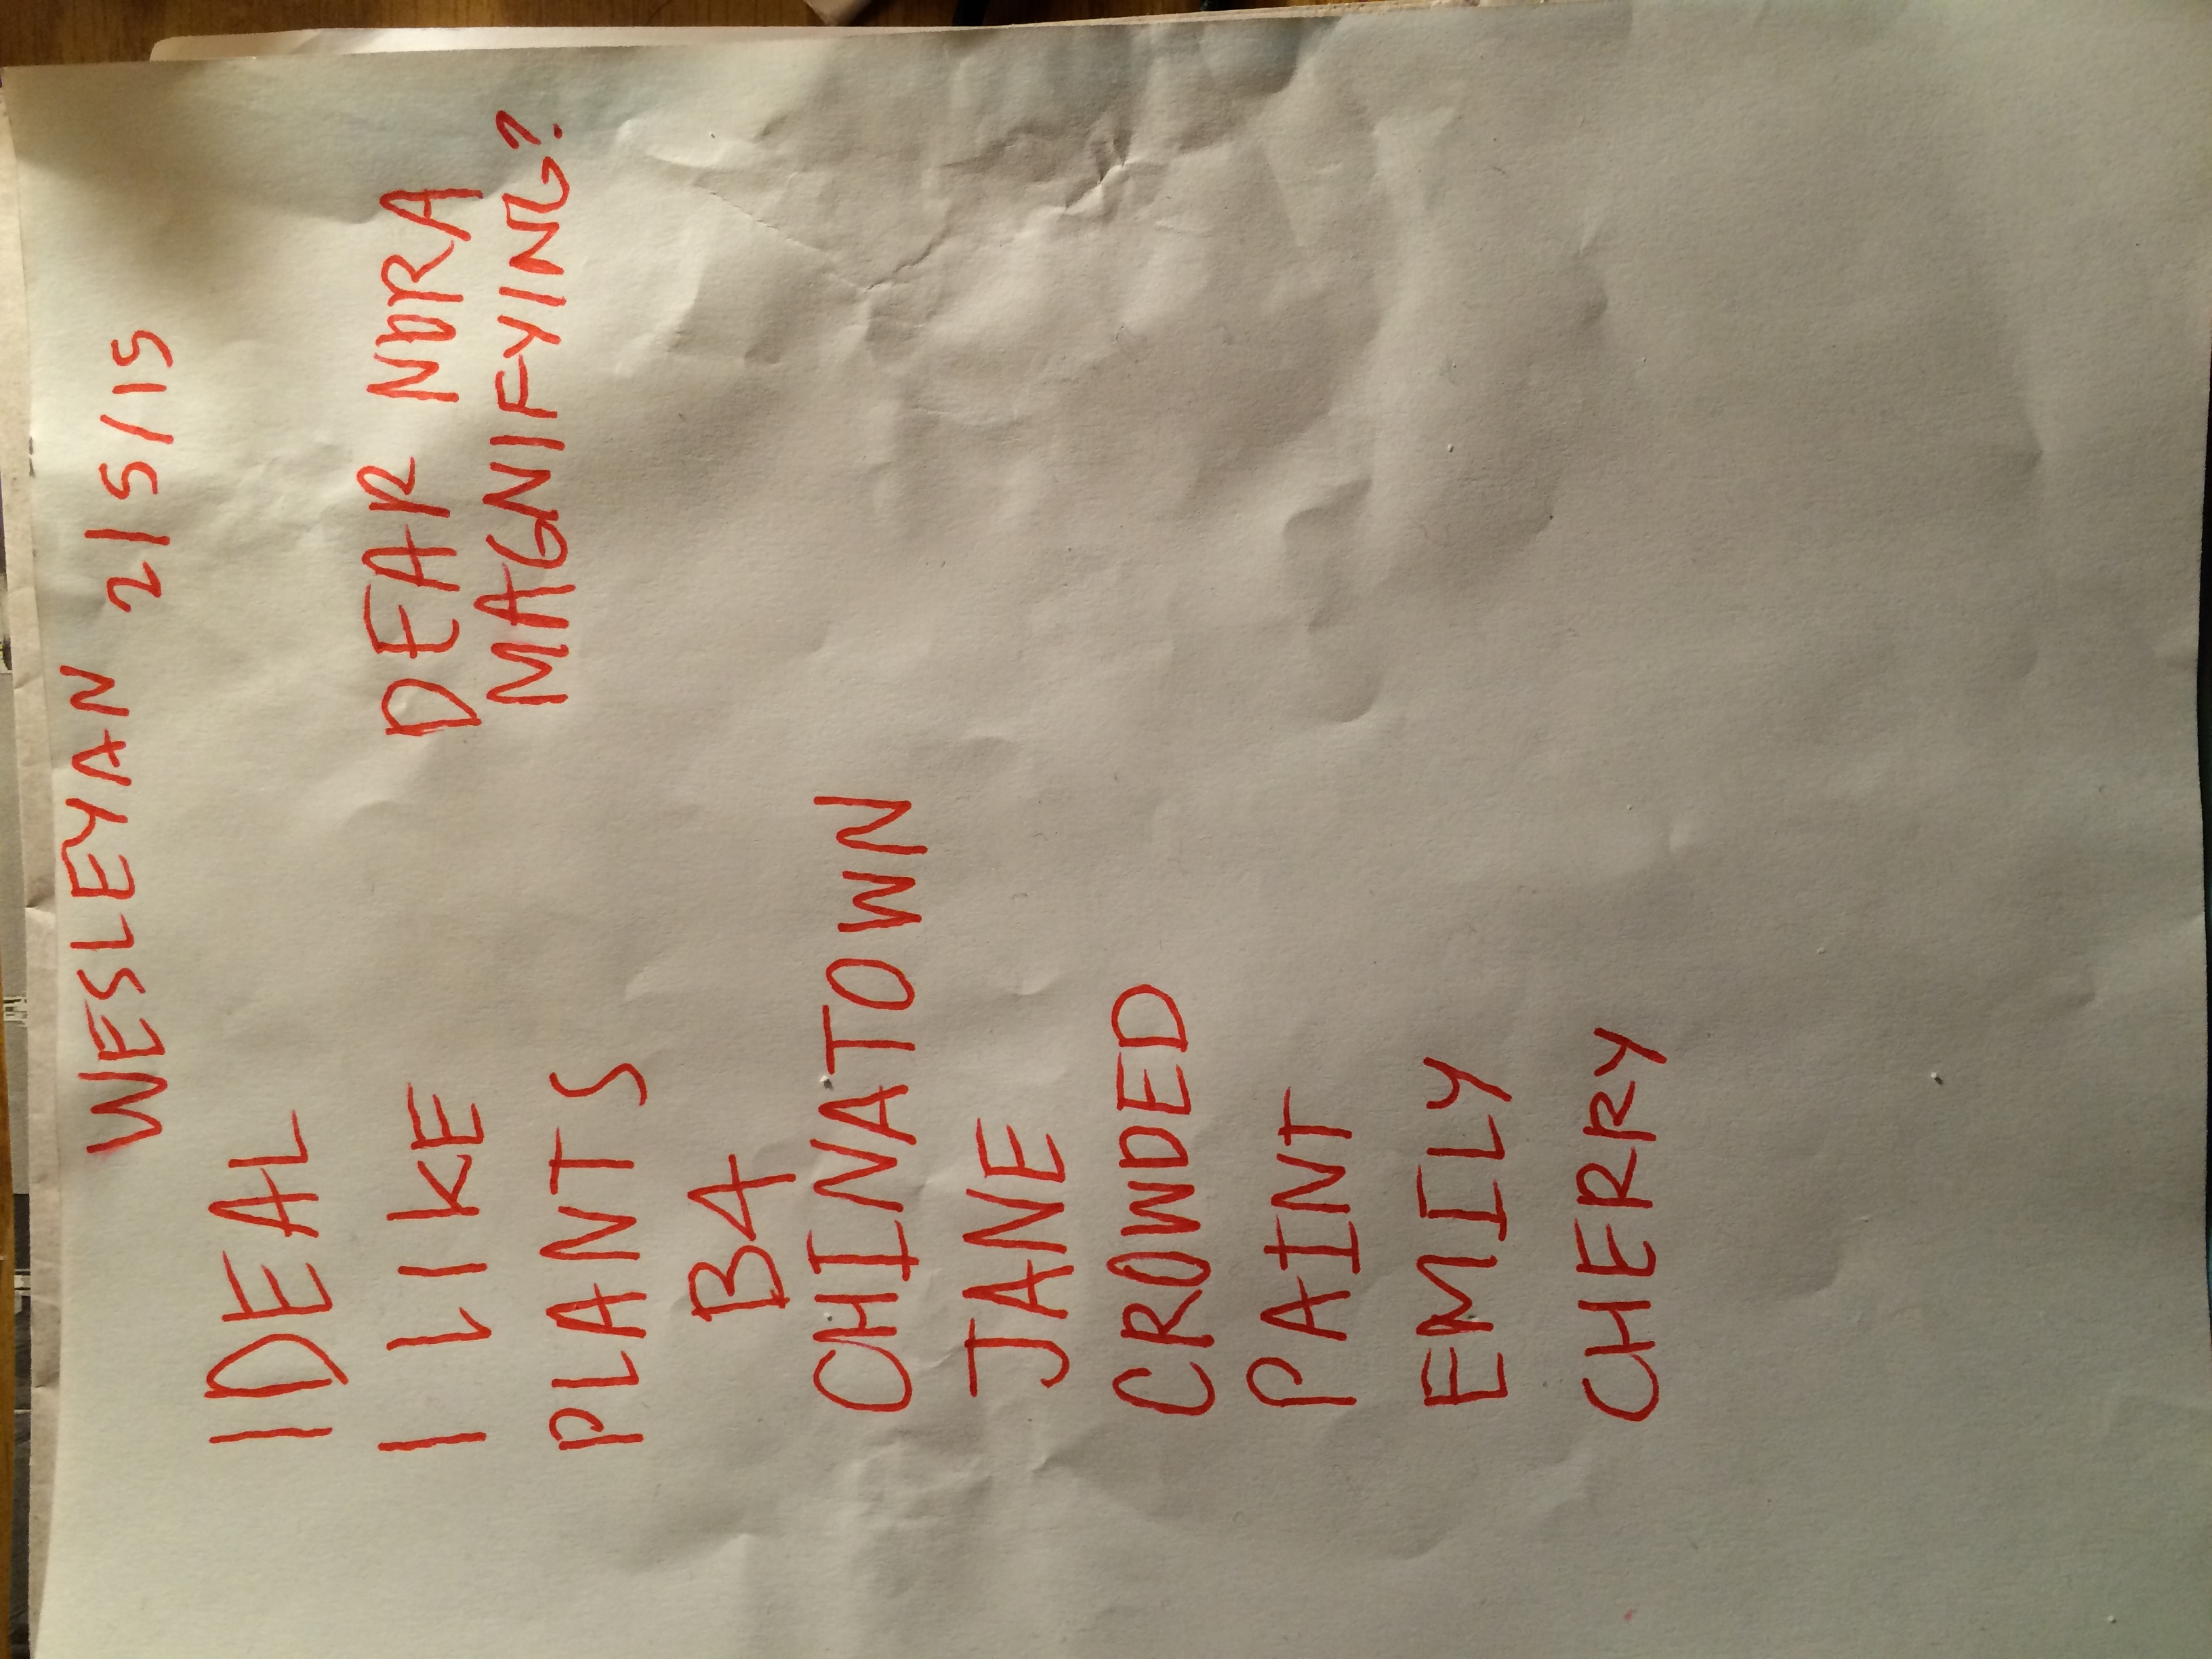 WESLEYAN 2/5/15
IDEAL
I LIKE
PLANTS
B4
CHINATOWN
JANE
CROWDED
PAINT
EMILY
CHERRY
DEAR NORA
MAGNIFYING?